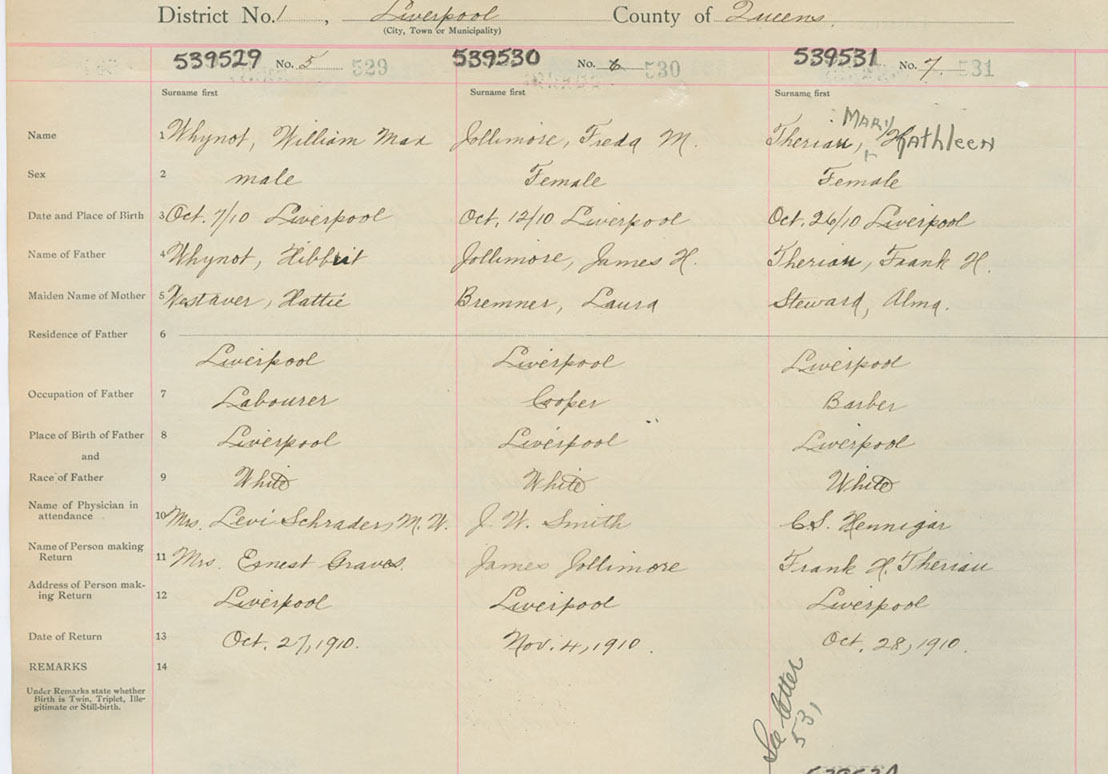 District No. 1, Liverpool County of Queens
(City, Town or Municipality)
539529 No. 5 529 539530 No. 6 530 539531 No. 7. 531
Surname first Surname first Surname first
Mary
Name 1 Whynot, William Max Jollimore, Freda M. Theriau, Kathleen
Sex 2 male Female Female
Date and Place of Birth 3 Oct. 7/10 Liverpool Oct. 12/10 Liverpool Oct. 26/10 Liverpool
Name of Father 4 Whynot, Hibbert Jollimore, James H. Theriau, Frank H.
Maiden Name of Mother 5 Hattie Bremner, Laura Steward, Alma.
Residence of Father 6
Liverpool Liverpool Liverpool
Occupation of Father 7 Labourer Cooper Barber
Place of Birth of Father 8 Liverpool Liverpool Liverpool
and
Race of Father 9 White White White
Name of Physician in
attendance 10 Mrs. Levi Schrader, M.W. J. W. Smith C.S. Hennigar
Name of Person making
Return 11 Mrs. Ernest Graves. James Jollimore Frank H. Theriau
Address of Person mak-
ing Return 12 Liverpool Liverpool Liverpool
Date of Return 13 Oct. 27, 1910. Nov. 4, 1910. Oct. 28, 1910.
REMARKS 14
Under Remarks state whether
Birth is Twin, Triplet, Ille-
gitimate or Still-birth.
See letter
531